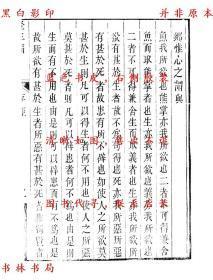 黑白影印
并非原本
鄉惟心之謂與
魚我所欲也熊掌亦我所欲也二者不可得兼舍
魚而取熊掌者也生亦我所欲也義亦我所欲也
二者不可得兼舍生而取義者也生亦我所欲所
欲有甚於生者故不為苟得也死亦我所惡所惡
有甚於死者故患有所不辟也如使人之所欲莫
甚於生則凡可以得生者何不用也使人之所惡
莫甚於死者則凡可以辟患者何不為也由是則
生而有不用也由是則可以辟患而有不為也是
故所欲有甚於生者所惡有甚於死者非獨賢者
清晰如图
图书代寻
店主
书林书局